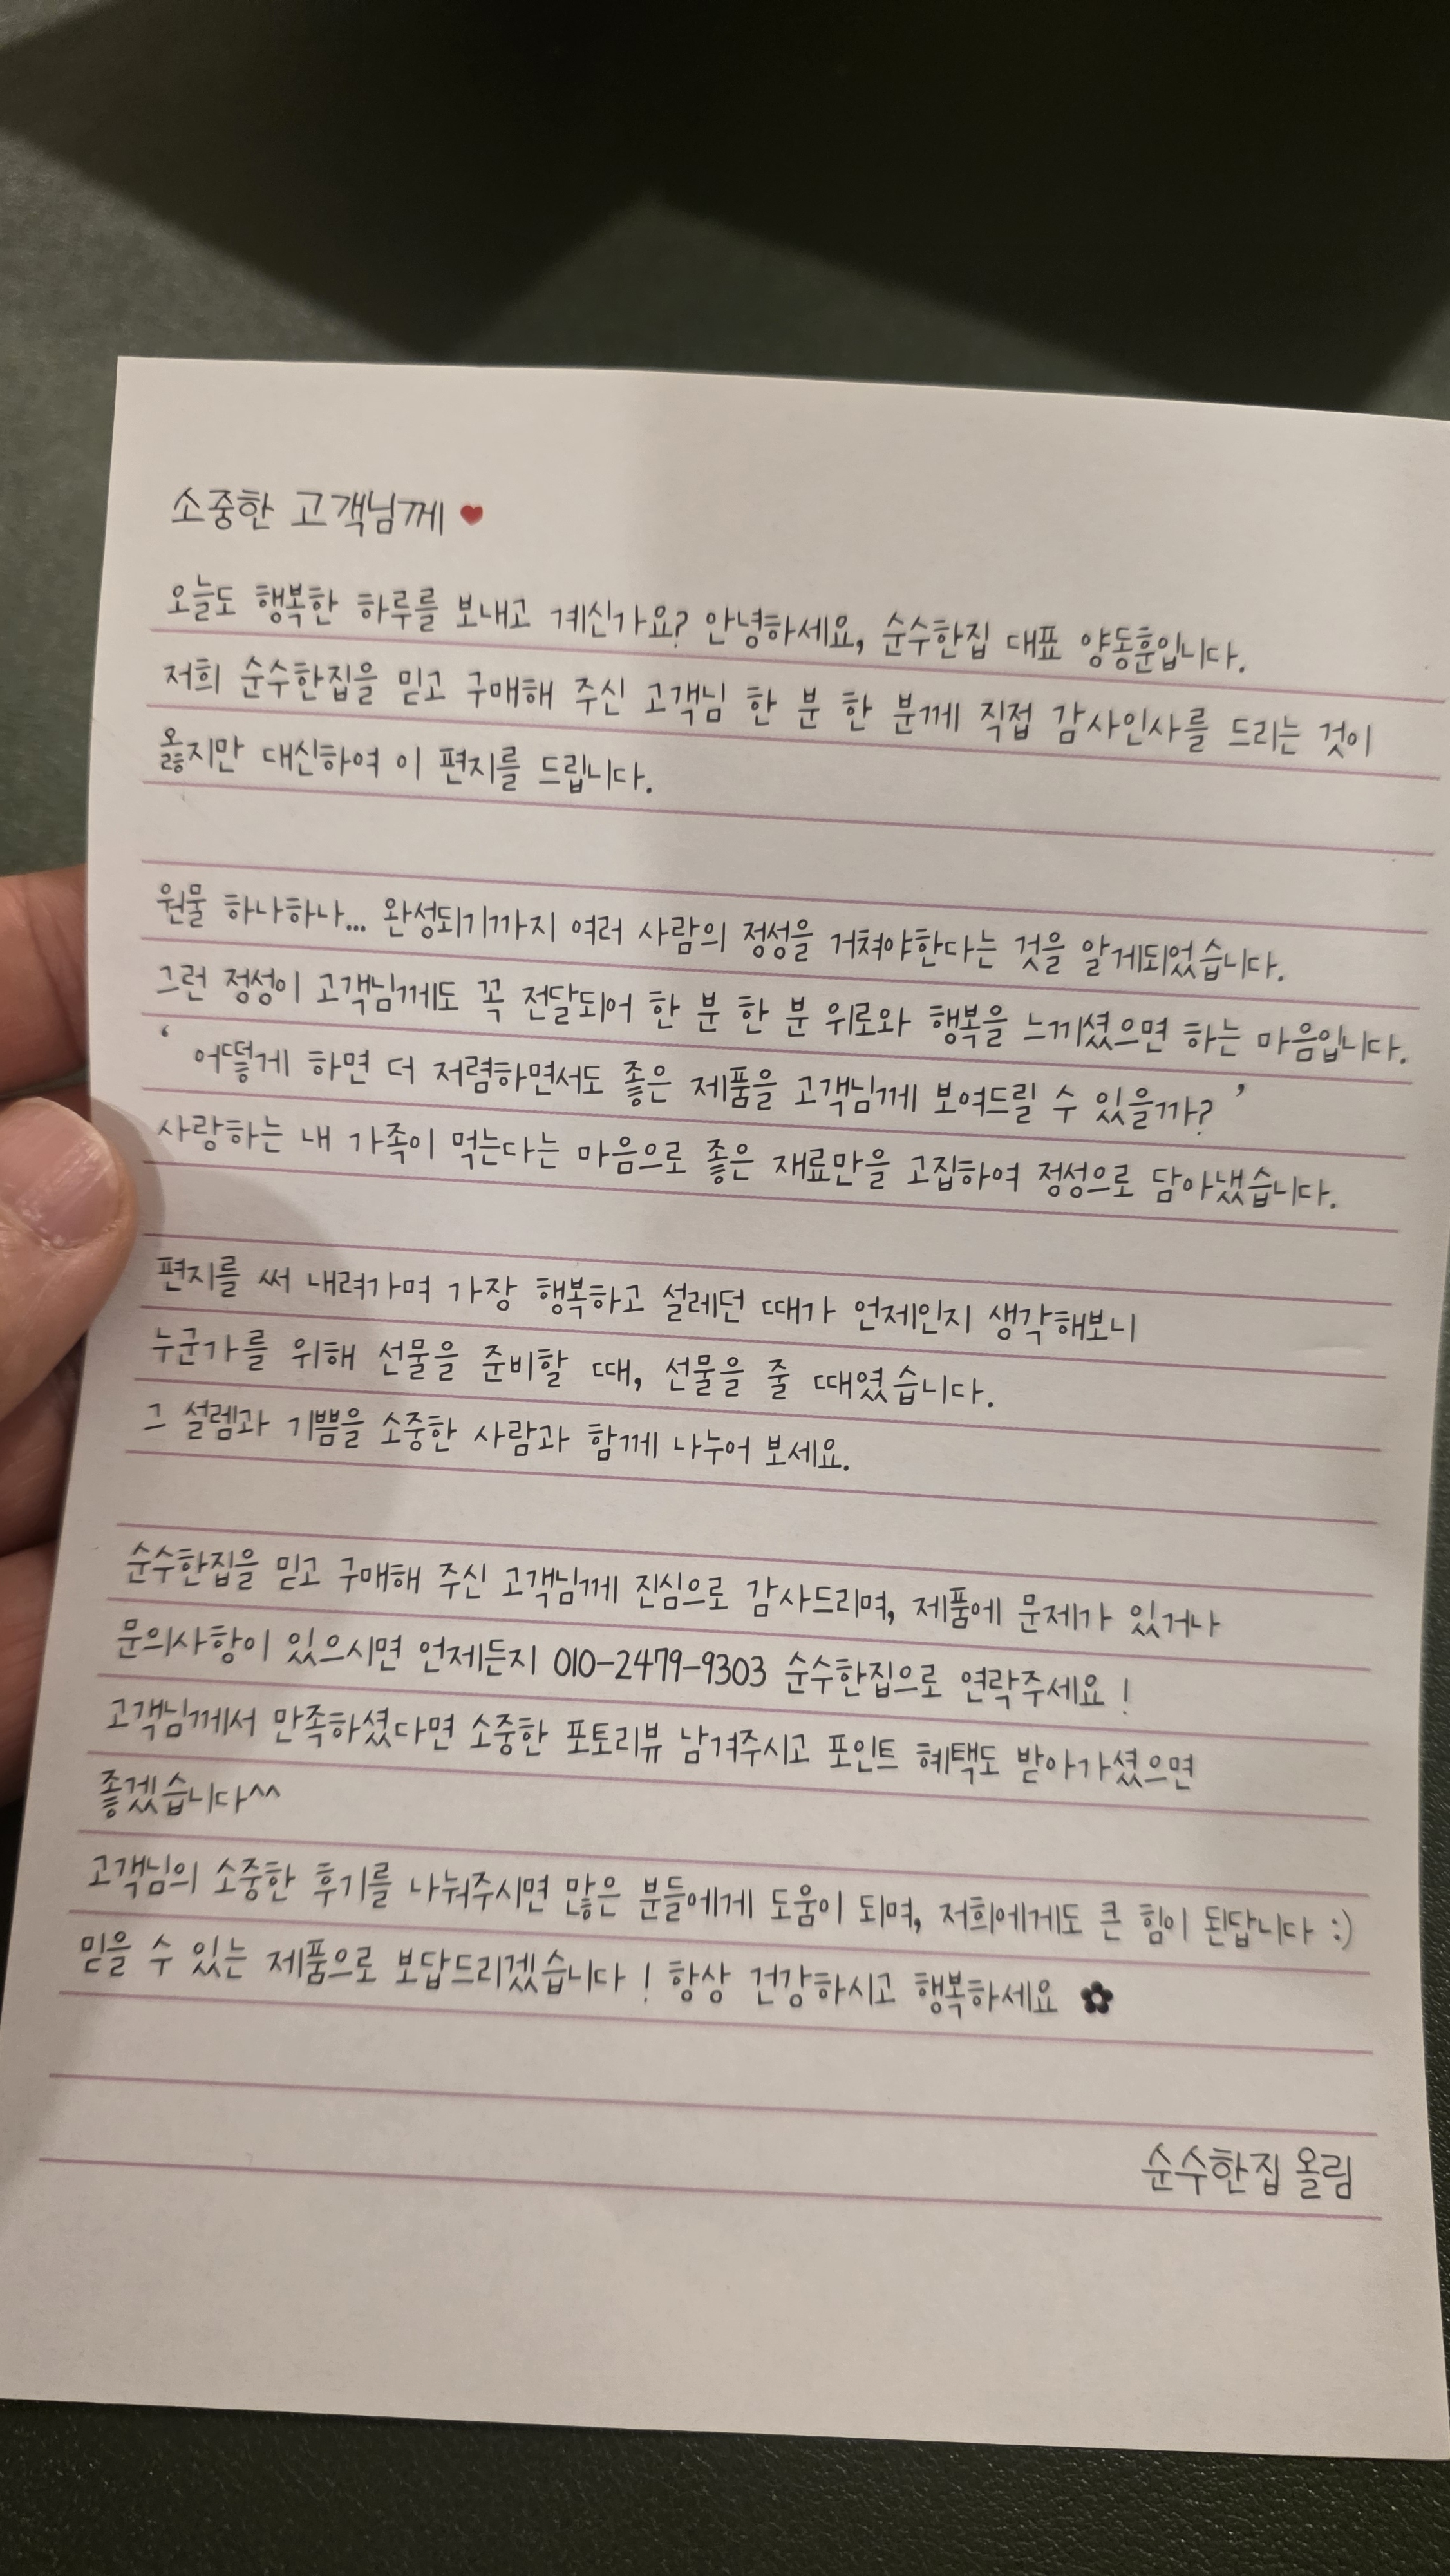 소중한 고객님께 ♥
오늘도 행복한 하루를 보내고 계신가요? 안녕하세요, 순수한집 대표 양동훈입니다.
저희 순수한집을 믿고 구매해 주신 고객님 한 분 한 분께 직접 감사인사를 드리는 것이
옳지만 대신하여 이 편지를 드립니다.
원물 하나하나... 완성되기까지 여러 사람의 정성을 거쳐야한다는 것을 알게되었습니다.
그런 정성이 고객님께도 꼭 전달되어 한 분 한 분 위로와 행복을 느끼셨으면 하는 마음입니다.
‘ 어떻게 하면 더 저렴하면서도 좋은 제품을 고객님께 보여드릴 수 있을까? ’
사랑하는 내 가족이 먹는다는 마음으로 좋은 재료만을 고집하여 정성으로 담아냈습니다.
편지를 써 내려가며 가장 행복하고 설레던 때가 언제인지 생각해보니
누군가를 위해 선물을 준비할 때, 선물을 줄 때였습니다.
그 설렘과 기쁨을 소중한 사람과 함께 나누어 보세요.
순수한집을 믿고 구매해 주신 고객님께 진심으로 감사드리며, 제품에 문제가 있거나
문의사항이 있으시면 언제든지 010-2479-9303 순수한집으로 연락주세요 !
고객님께서 만족하셨다면 소중한 포토리뷰 남겨주시고 포인트 혜택도 받아가셨으면
좋겠습니다^^
고객님의 소중한 후기를 나눠주시면 많은 분들에게 도움이 되며, 저희에게도 큰 힘이 된답니다 :)
믿을 수 있는 제품으로 보답드리겠습니다 ! 항상 건강하시고 행복하세요 ✿
순수한집 올림